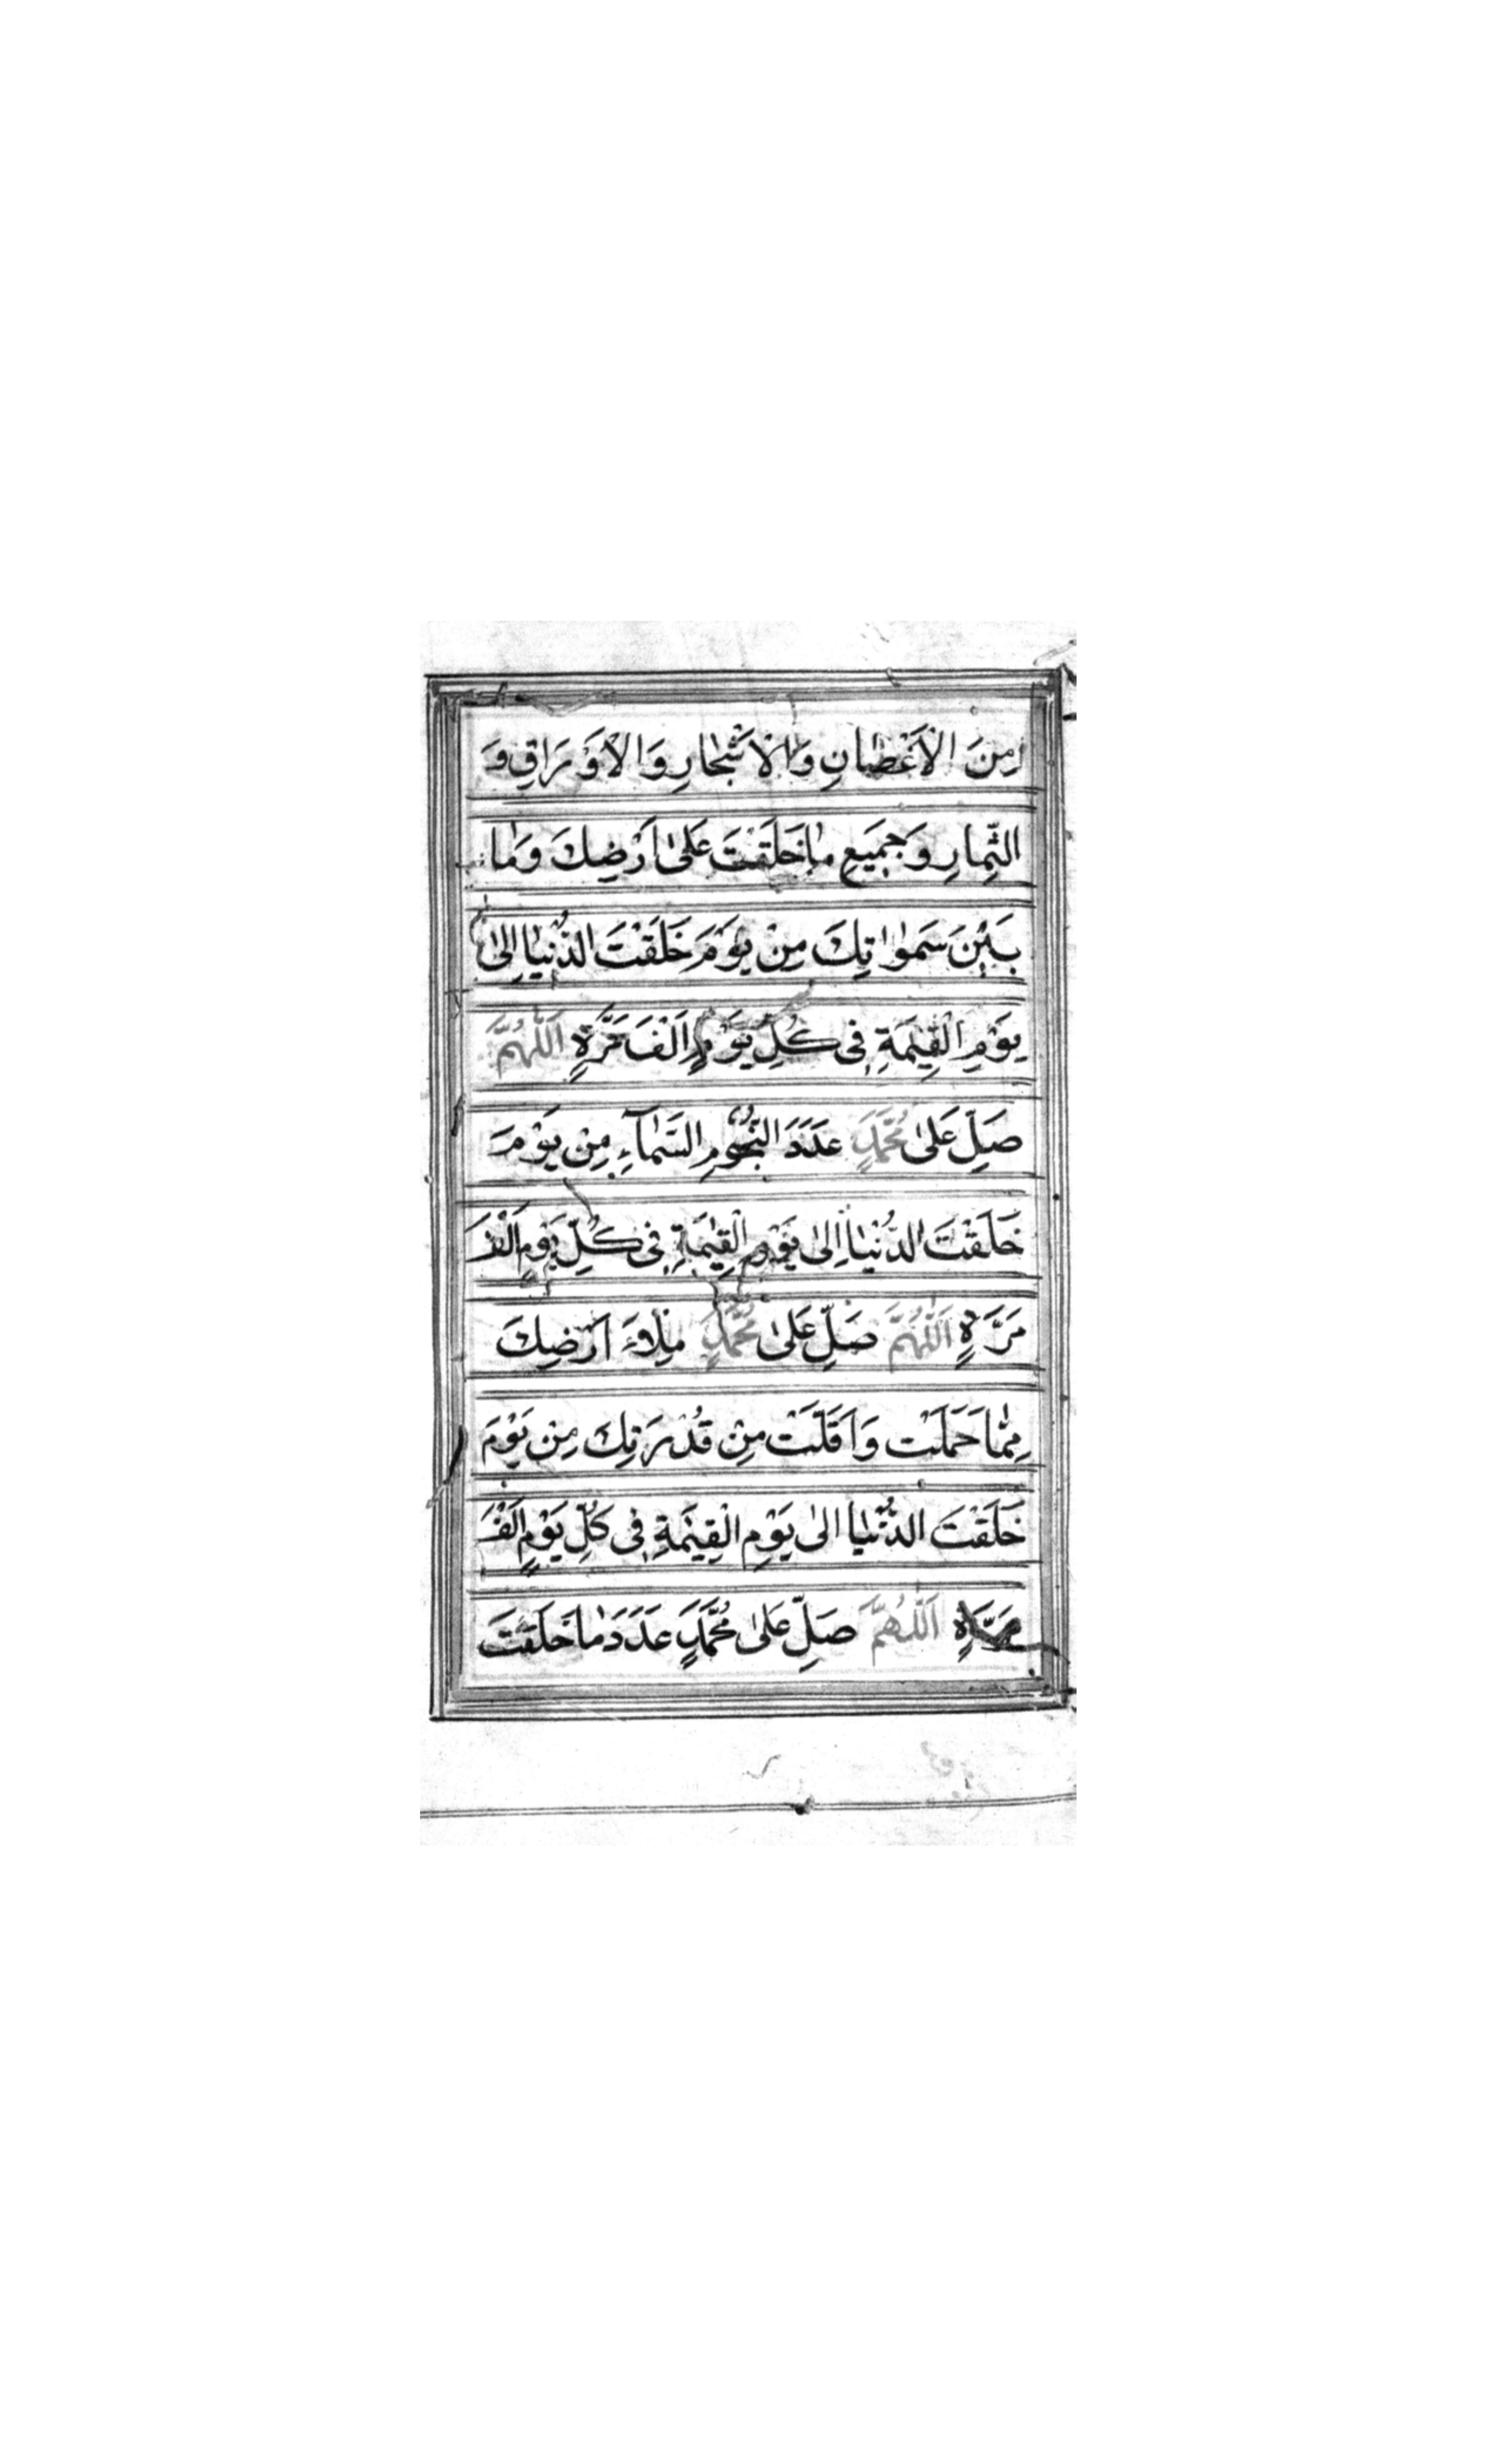 مِنَ الْاَغْصٰانِ وَالْاَشْجٰارِ وَالْاَوْرَاقِ وَ
الثِّمٰارِ وَجَمَيعِ مٰاخَلَقْتَ عَلىٰ اَرْضِكَ وَمٰا
بَيْنَ سَمٰوٰاتِكَ مِنْ يَوْمَ خَلَقْتَ الدُّنْيٰا اِلىٰ
يَوْمِ الْقِيٰمَةِ فِى كُلِّ يَوْمٍ اَلْفَ مَرَّةٍ اَللّٰهُمَّ
صَلِّ عَلىٰ مُحَمَّدٍ عَدَدَ النُّجُومِ السَّمٰآءِ مِنْ يَوْمَ
خَلَقْتَ الدُّنْيٰا اِلىٰ يَوْمِ الْقِيٰمَةِ فِى كُلِّ يَوْمٍ اَلْفَ
مَرَّةٍ اَللّٰهُمَّ صَلِّ عَلىٰ مُحَمَّدٍ مِلْاءَ اَرْضِكَ
مِمّٰا حَمَلَتْ وَاَقَلَّتْ مِنْ قُدْرَتِكَ مِنْ يَوْمَ
خَلَقْتَ الدُّنْيٰا الىٰ يَوْمِ الْقِيٰمَةِ فِى كُلِّ يَوْمٍ اَلْفَ
مَرَّةٍ اَللّٰهُمَّ صَلِّ عَلىٰ مُحَمَّدٍ عَدَدَ مٰاخَلَقْتَ